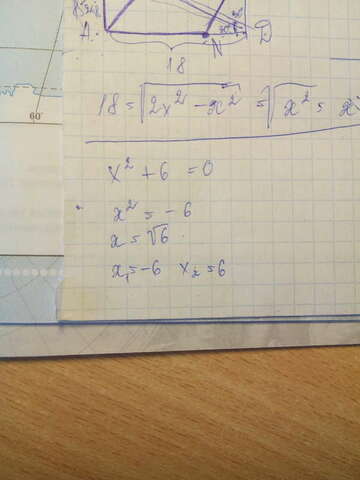 A
N
D
18
18 = √2x² - x² = √x² = x
x² + 6 = 0
x² = - 6
x = √6
x₁ = -6 x₂ = 6
60°